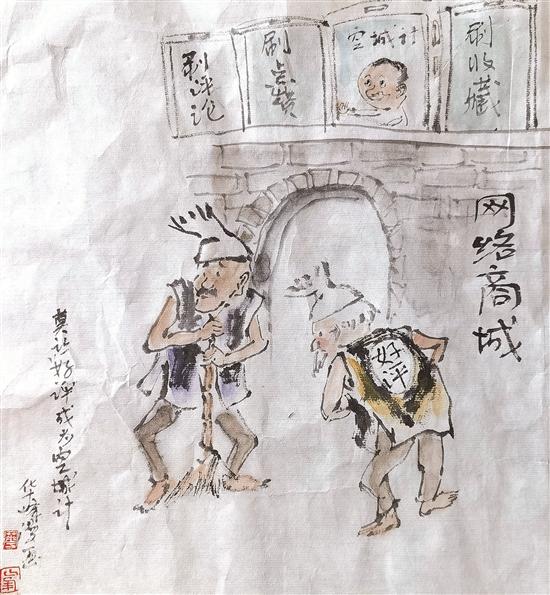 刷评论
刷点赞
空城计
刷收藏
网络商城
好评
莫让好评成为空城计